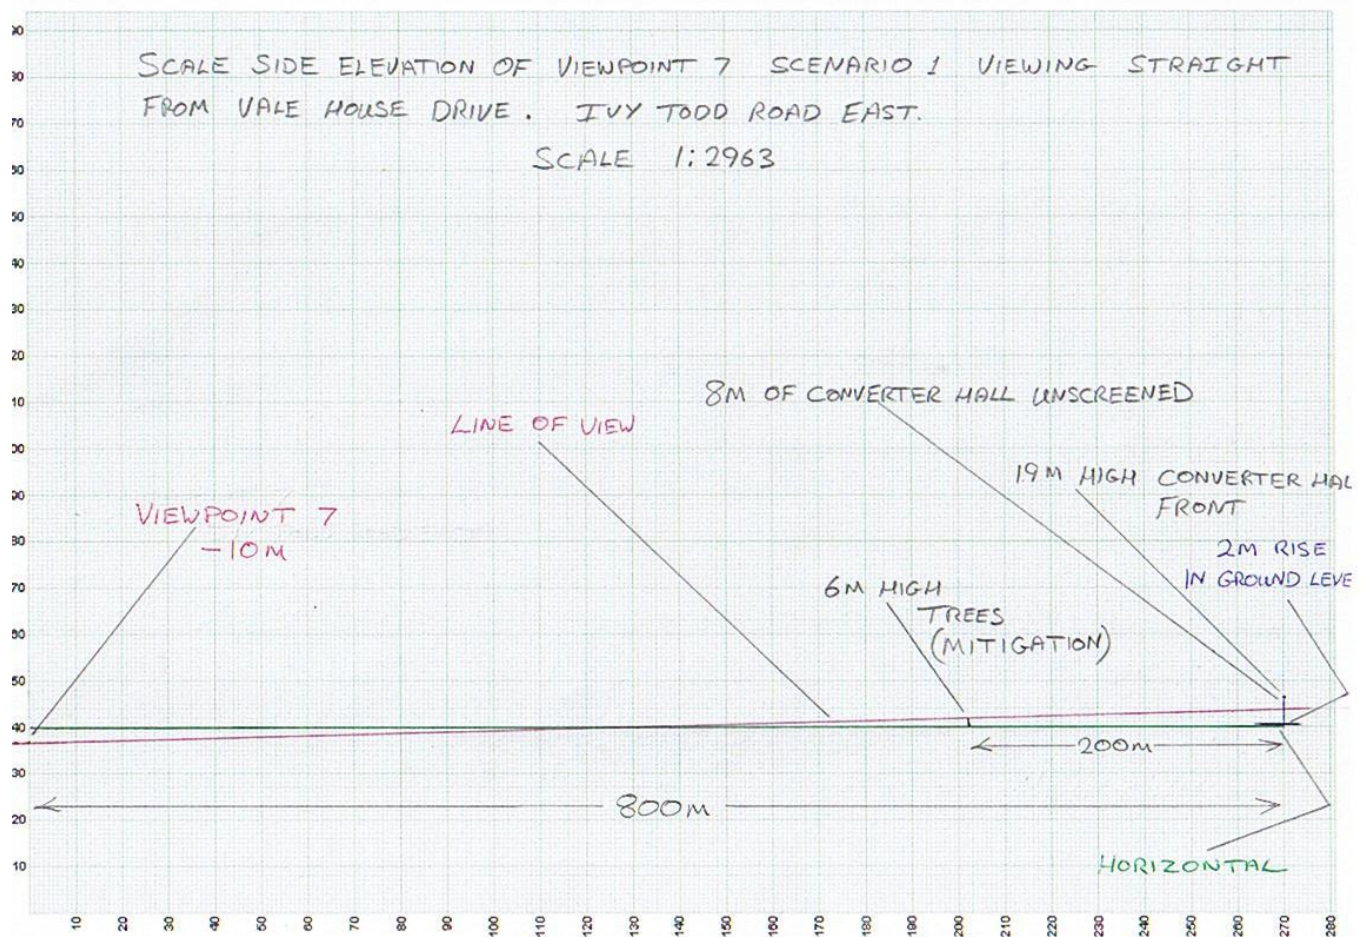 SCALE SIDE ELEVATION OF VIEWPOINT 7 SCENARIO 1 VIEWING STRAIGHT
FROM VALE HOUSE DRIVE. IVY TODD ROAD EAST.
SCALE 1:2963
8M OF CONVERTER HALL UNSCREENED
LINE OF VIEW
19M HIGH CONVERTER HAL
FRONT
VIEWPOINT 7
-10M
2M RISE
IN GROUND LEVE
6M HIGH
TREES
(MITIGATION)
200M
800M
HORIZONTAL
90
80
70
60
50
40
30
20
10
00
90
80
70
60
50
40
30
20
10
10 20 30 40 50 60 70 80 90 100 110 120 130 140 150 160 170 180 190 200 210 220 230 240 250 260 270 280